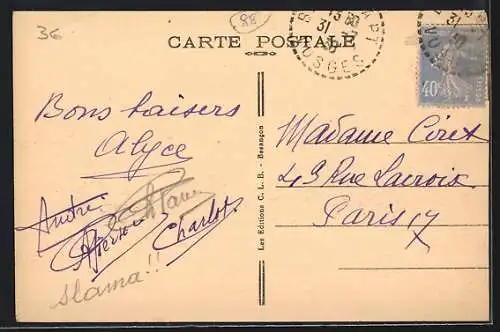 36
88
CARTE POSTALE
13 30
31
VOSGES
40c
Bons baisers
Alyce
André
Charlot
Slama!!
Les Editions C. L. B. - Besançon
Madame Ciret
43 Rue Lacroix
Paris 17